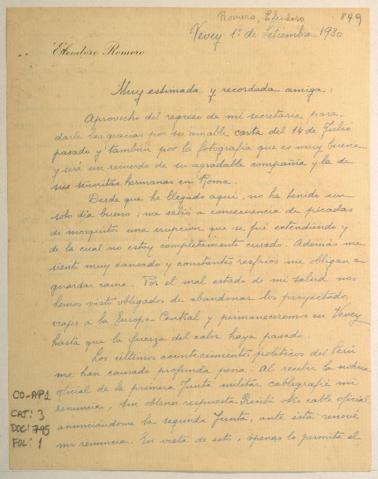 Romero, Eleodoro
849
Vevey 1º de Setiembre 1930
Eleodoro Romero
Muy estimada y recordada amiga:
Aprovecho del regreso de mi secretaria para
darle las gracias por su amable carta del 14 de Julio
pasado y también por la fotografía que es muy buena
y será un recuerdo de su agradable compañía y la de
sus señoritas hermanas en Roma.
Desde que he llegado aquí, no he tenido un
solo día bueno; me salió a consecuencia de picadas
de mosquito una erupción que se fué extendiendo y
de la cual no estoy completamente curado. Además me
siento muy cansado y constantes resfrios me obligan a
guardar cama. Por el mal estado de mi salud nos
hemos visto obligados de abandonar los proyectados
viajes a la Europa Central y permaneceremos en Vevey
hasta que la fuerza del calor haya pasado.
Los últimos acontecimientos políticos del Perú
me han causado profunda pena. Al recibir la noticia
oficial de la primera Junta militar cablegrafié mi
renuncia, sin obtener respuesta. Recibí otro cable oficial
anunciándome la segunda Junta, ante ésta renové
mi renuncia. En vista de esto, apenas lo permita el
CO-AP1
CAJ: 3
DOC: 795
FOL: 1